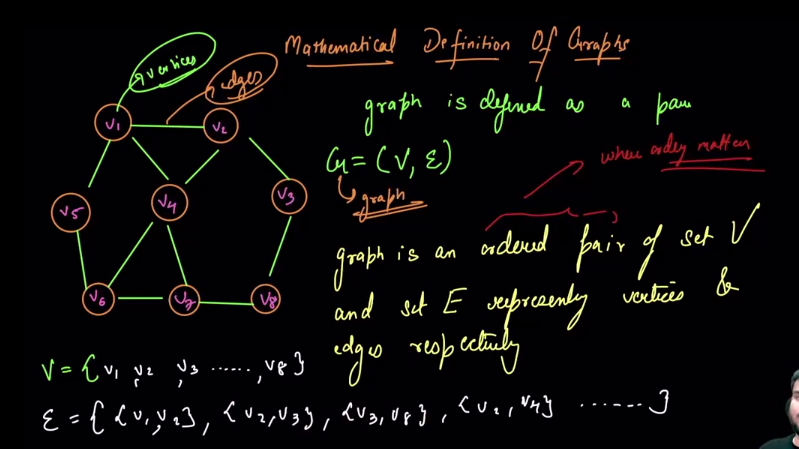 Mathematical Definition Of Graphs
vertices
edges
graph is defined as a pair
G = (V, E)
graph
when order matters
graph is an ordered pair of set V
and set E representing vertices &
edges respectively
V1
V2
V3
V4
V5
V6
V7
V8
V = { V1, V2, V3 ......, V8 }
E = { {V1, V2}, {V2, V3}, {V3, V8}, {V2, V4} ....... }